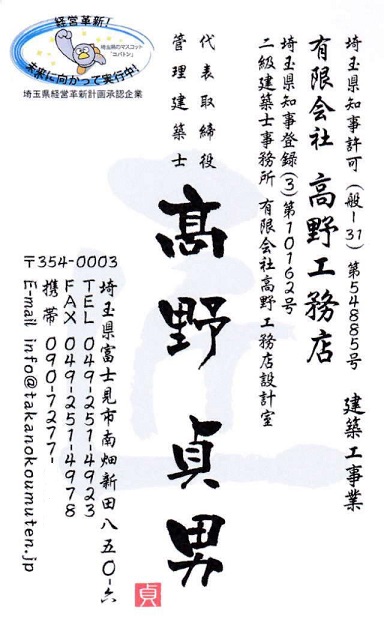 埼玉県知事許可（般ー31）第54885号　建築工事業
有限会社 髙野工務店
埼玉県知事登録(3)第10162号
二級建築士事務所 有限会社髙野工務店設計室
代表取締役
管理建築士
髙野貞男
貞
経営革新!
埼玉県のマスコット
「コバトン」
未来に向かって実行中!
埼玉県経営革新計画承認企業
〒354-0003
埼玉県富士見市南畑新田八五〇-六
TEL 049-251-4923
FAX 049-251-4978
携帯 090-7277-
E-mail info@takanokoumuten.jp